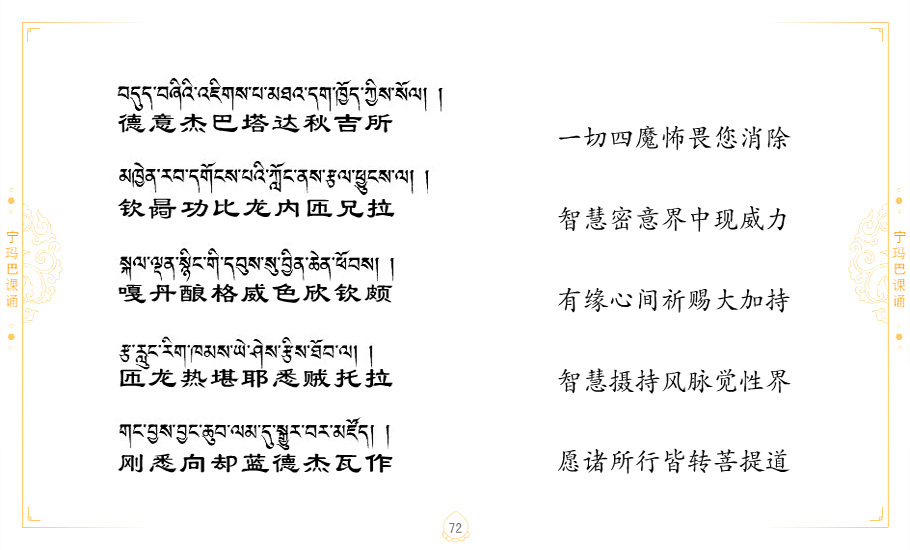 བདུད་བཞིའི་འཇིགས་པ་མཐའ་དག་ཁྱོད་ཀྱིས་སོལ། །
德意杰巴塔达秋吉所
一切四魔怖畏您消除
མཁྱེན་རབ་དགོངས་པའི་ཀློང་ནས་རྩལ་ཕྱུངས་ལ། །
钦哥功比龙内匝兄拉
智慧密意界中现威力
སྐལ་ལྡན་སྙིང་གི་དབུས་སུ་བྱིན་ཆེན་ཕོབས། །
嘎丹酿格威色欣钦颇
有缘心间祈赐大加持
རྩ་རླུང་རིག་ཁམས་ཡེ་ཤེས་རྩིས་ཐོབ་ལ། །
匝龙热堪耶悉贼托拉
智慧摄持风脉觉性界
གང་བྱས་བྱང་ཆུབ་ལམ་དུ་སྒྱུར་བར་མཛོད། །
刚悉向却蓝德杰瓦作
愿诸所行皆转菩提道
宁玛巴课诵
宁玛巴课诵
72